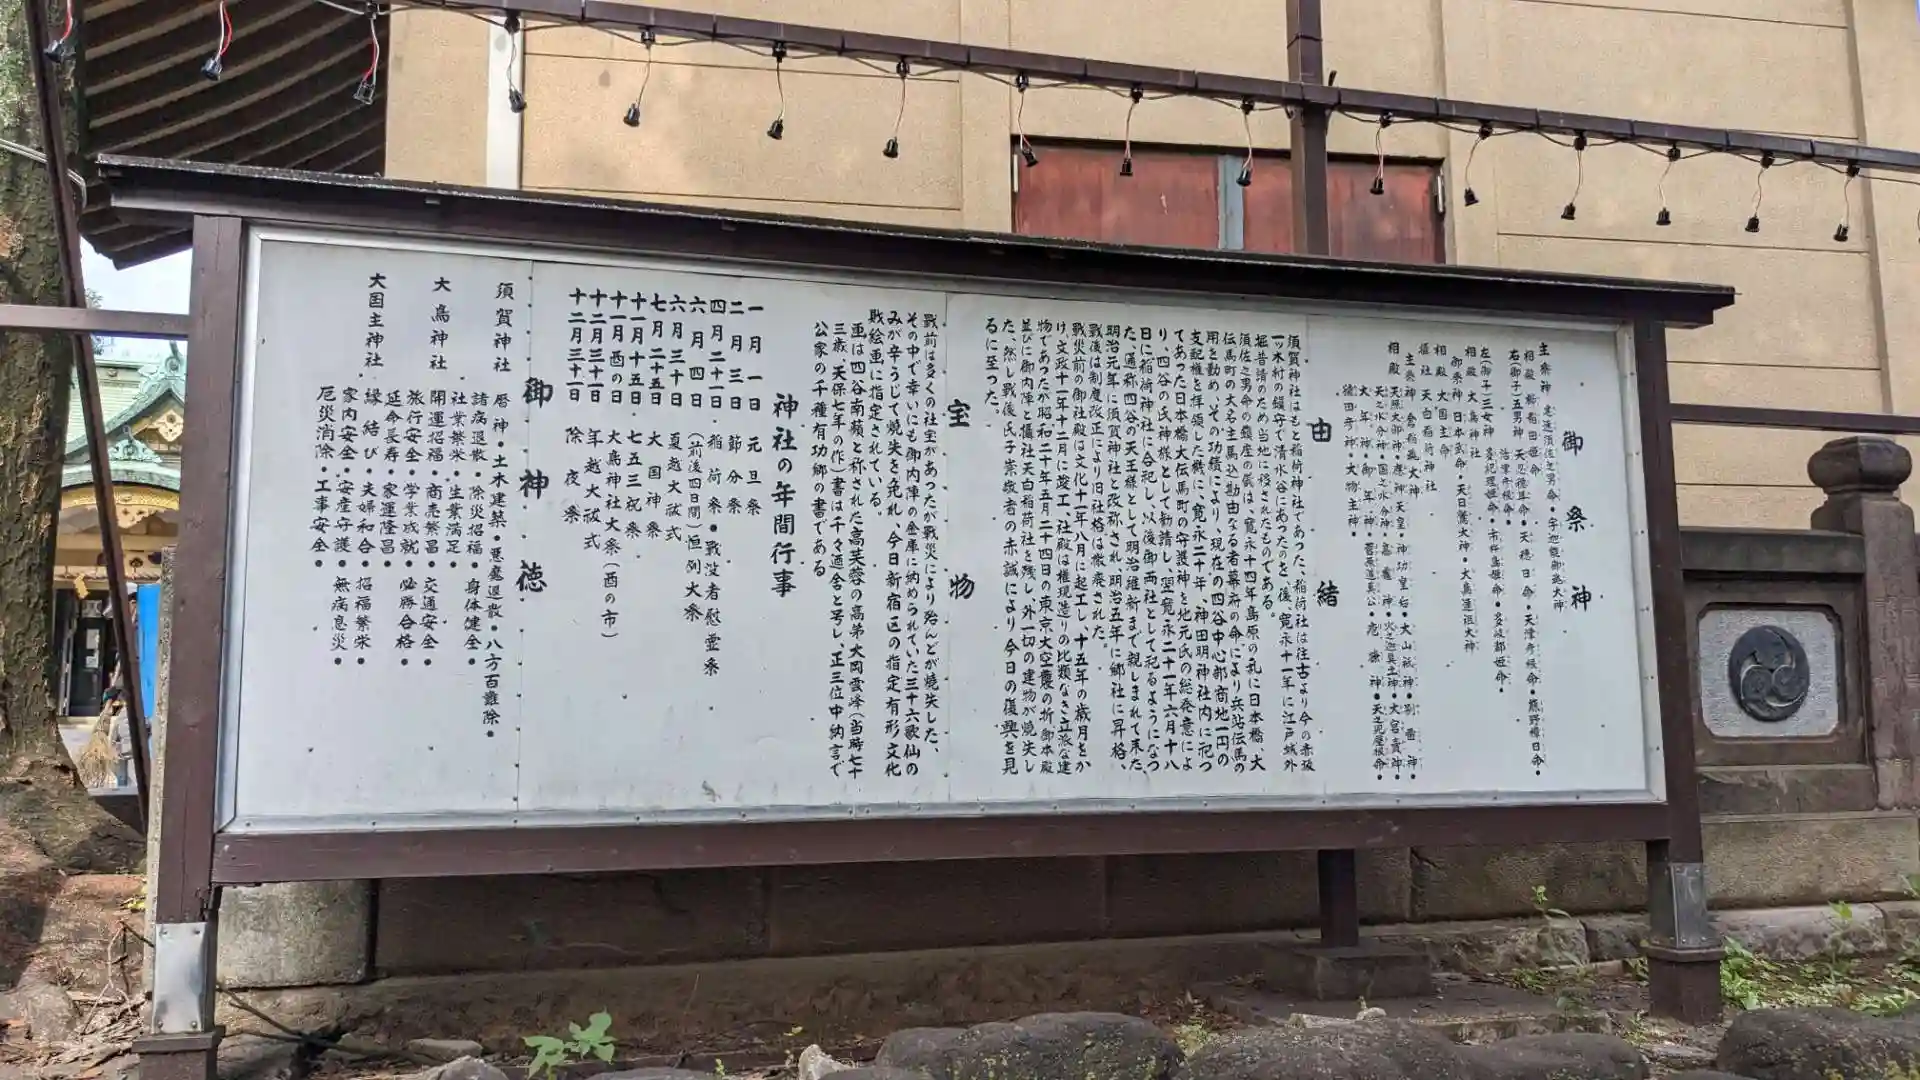 御祭神
主祭神 建速須佐之男命・宇迦能御魂大神
相殿 櫛稲田姫命・
右(御子)五男神 天忍穂耳命・天穂日命・天津彦根命・熊野樟日命・
活津彦根命・
左(御子)三女神 多紀理姫命・市杵島姫命・多岐都姫命・
相殿 大鳥神社
御祭神 日本武命・天日鷲大神・大鳥連祖大神
相殿 大国主命
摂社 天白稲荷神社
主祭神 倉稲魂大神
相殿 天照大御神・応神天皇・神功皇后・大山祇神・別雷神・
天之水分神・国之水分神・高龗神・火之迦具土神・大宮賣神・
大年神・御年神・菅原道真公・疱瘡神・天之児屋根命・
猿田彦神・大物主神・
由緒
須賀神社はもと稲荷神社であった、稲荷社は往古より今の赤坂
一ッ木村の鎮守で清水谷にあったのを後、寛永十一年に江戸城外
堀普請のため当地に移されたものである。
須佐之男命の鎮座の儀は、寛永十四年島原の乱に日本橋、大
伝馬町の大名主馬込勘由なる者幕府の命により兵站伝馬の
用を勤め、その功績により、現在の四谷中心部商地一円の
支配権を拝領した機に、寛永二十年、神田明神社内に祀つ
てあった日本橋大伝馬町の守護神を地元氏の総発意によ
り、四谷の氏神様として勧請し、翌寛永二十一年六月十八
日に稲荷神社に合祀し、以後御両社として祀るようになつ
た、通称四谷の天王様として明治維新まで親しまれて来た、
明治元年に須賀神社と改称され、明治五年に郷社に昇格、
戦後は制度改正により旧社格は撤廃された。
戦災前の御社殿は文化十一年八月に起工し、十五年の歳月をか
け、文政十一年十二月に竣工、社殿は権現造りの比類なき立派な建
物であったが昭和二十年五月二十四日の東京大空襲の折御本殿
並びに御内陣と摂社天白稲荷社を残し、外一切の建物が焼失し
た、然し戦後氏子崇敬者の赤誠により今日の復興を見
るに至った。
宝物
戦前は多くの社宝があったが戦災により殆んどが焼失した、
その中で幸いにも御内陣の金庫に納められていた三十六歌仙の
みが辛うじて焼失を免れ、今日新宿区の指定有形文化
財絵画に指定されている。
画は四谷南蘋と称された高芙蓉の高弟大岡雲峰(当時七十
三歳 天保七年の作)書は千々迺舎と号し、正三位中納言で
公家の千種有功卿の書である
神社の年間行事
一月一日 元旦祭
二月三日 節分祭
四月二十一日 稲荷祭・戦没者慰霊祭
六月四日 (前後四日間)恒例大祭
六月三十日 夏越大祓式
七月二十五日 大国神祭
十一月十五日 七五三祝祭
十一月酉の日 大鳥神社大祭(酉の市)
十二月三十一日 年越大祓式
十二月三十一日 除夜祭
御神徳
須賀神社 暦神・土木建築・悪魔退散・八方百難除・
諸病退散・除災招福・身体健全・
社業繁栄・生業満足・
大鳥神社 開運招福・商売繁昌・交通安全・
旅行安全・学業成就・必勝合格・
延命長寿・家運隆昌・
大国主神社 縁結び・夫婦和合・招福繁栄・
家内安全・安産守護・無病息災・
厄災消除・工事安全・